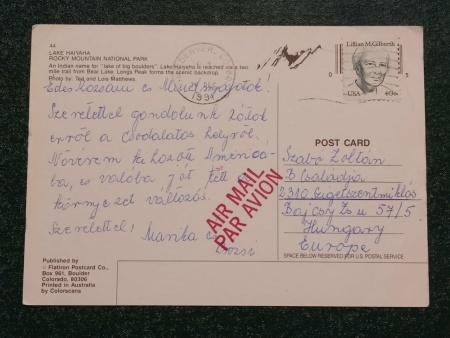 44
LAKE HAIYAHA
ROCKY MOUNTAIN NATIONAL PARK
An Indian name for "lake of big boulders". Lake Haiyaha is reached via a two
mile trail from Bear Lake. Longs Peak forms the scenic backdrop.
Photo by: Ted and Lois Matthews
DENVER, CO
1991
Lillian M. Gilbreth
USA 40c
Edes
Szeretettel gondolunk Rátok
erről a Csodálatos helyről.
Nővérem kihozott Ameriká-
ba, és valóba jót tett a
környezet változás.
Szeretettel:
Marika és
AIR MAIL
PAR AVION
POST CARD
Szabo Zoltán
B Csaladja
2310 Szigetszentmiklós
Bajcsy Zs u 57/5
Hungary
Europe
SPACE BELOW RESERVED FOR U.S. POSTAL SERVICE
Published by
© Flatiron Postcard Co.,
Box 961, Boulder
Colorado, 80306
Printed in Australia
by Colorscans